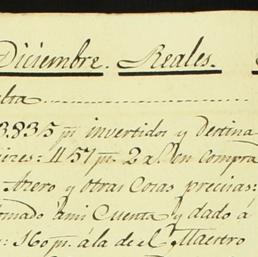 Diciembre. Reales.
lta
3.835 ps invertidos y destina
eses: 457 ps. 2 as. en compra
Arero y otras Cosas precisas:
omado àmi Cuenta y dado á
: 160 ps. á la de el Maestro